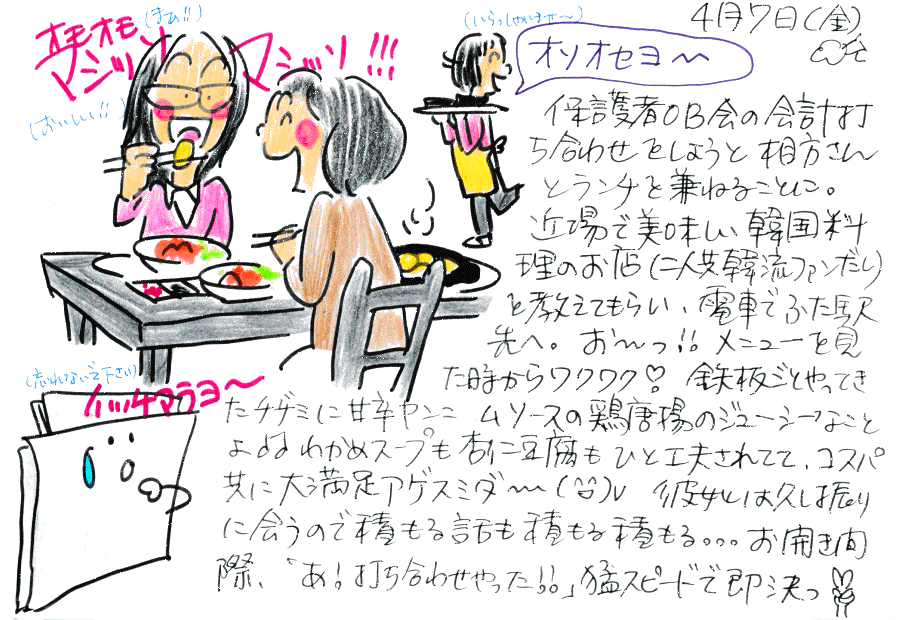 4月7日(金)
(まぁ!!)
オモオモ
マシッソ
マシッソ!!!
(おいしい!!)
(いらっしゃいませ〜)
オソオセヨ〜
保護者OB会の会計打
ち合わせをしようと相方さん
とランチを兼ねることに。
近場で美味しい韓国料
理のお店(二人共韓流ファンだし)
を教えてもらい、電車でふた駅
先へ。お〜っ!!メニューを見
た時からワクワク♡ 鉄板ごとやってき
たチヂミに甘辛ヤンニョムソースの鶏唐揚のジューシーなこと
よ♪♪わかめスープも杏仁豆腐もひと工夫されてて、コスパ
共に大満足アゲスミダ〜 彼女とは久し振り
に会うので積もる話も積もる積もる...お開き間
際、“あ!打ち合わせやった!!”猛スピードで即決っ
(忘れないで下さい)
イッチマラヨ〜